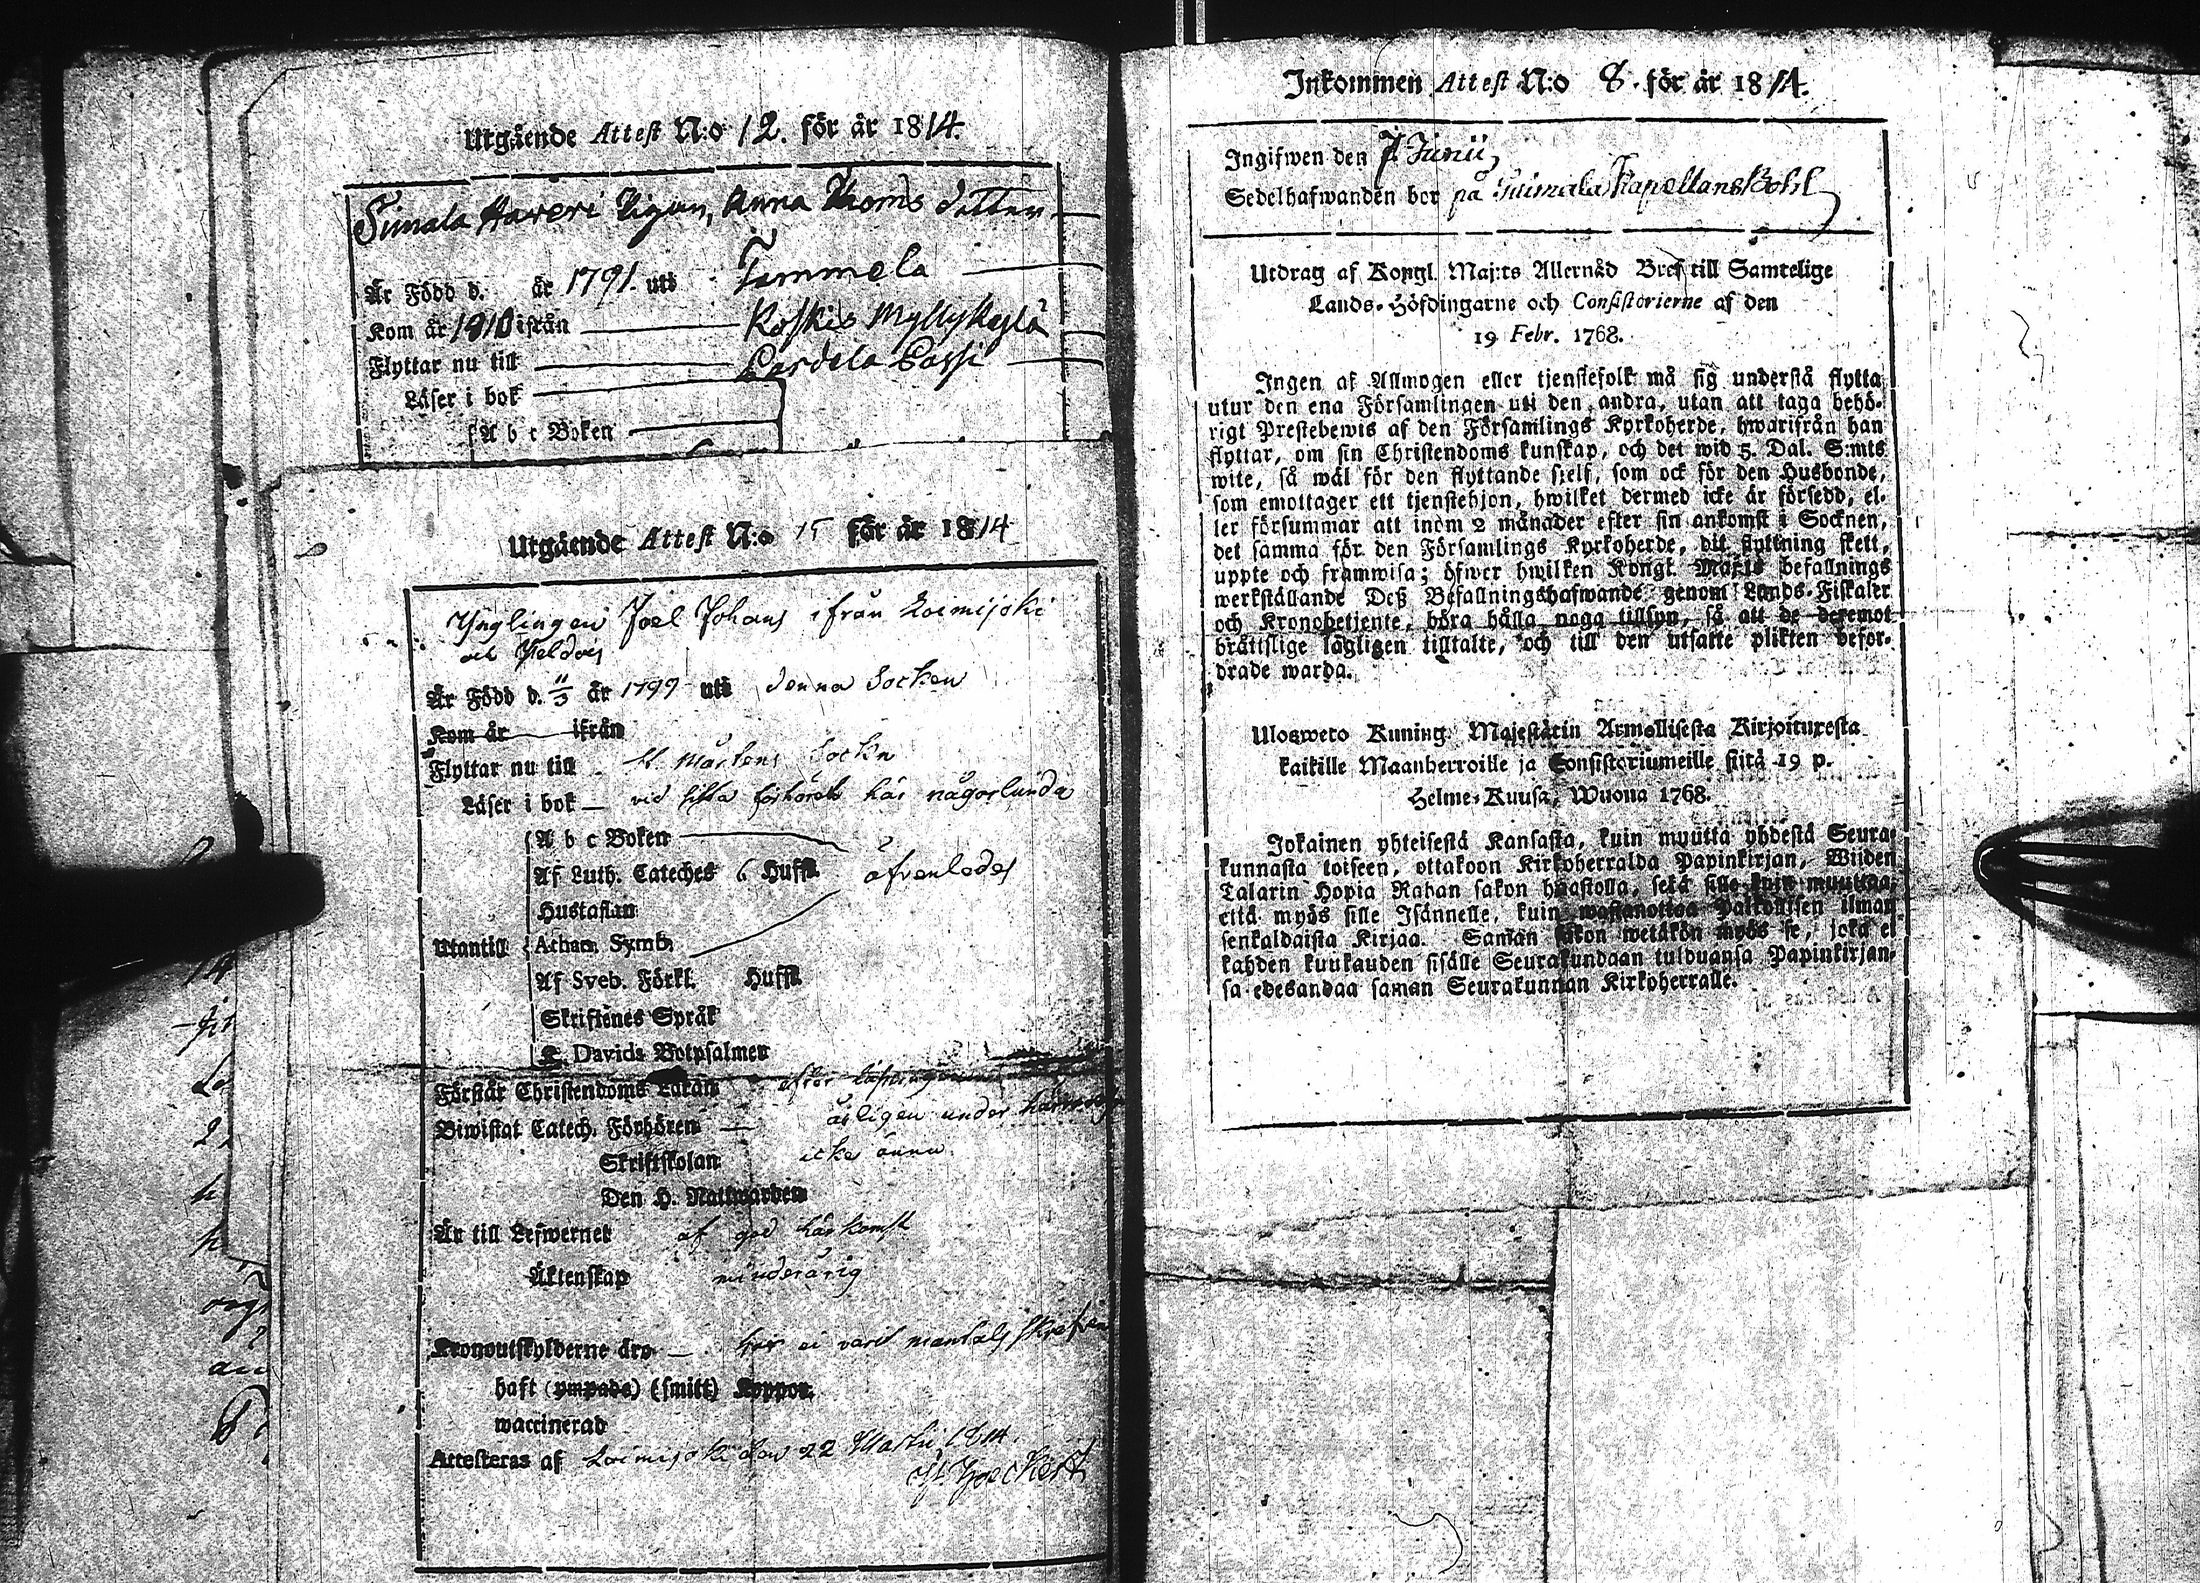 Utgående Attest N:o 12. för år 1814.
Simala Haveri Pigan, Anna Thoms dotter
Är Född d. år 1791. uti Tammela
Kom år 1810 ifrån Koskis Myllykylä
Flyttar nu till
Läser i bok
A b c Boken
Utgående Attest N:o 15 för år 1814
Ynglingen Joel Johans ifrån Loimijoki
och
Är Född d. 11/3 år 1799 uti denna Socken
Kom år ifrån
Flyttar nu till St. Mårtens Sockn
Läser i bok — vid sista förhöret här någorlunda
A b c Boken
Af Luth. Cateches 6 Hufst. äfvenledes
Hustaflan
Utantill Athan. Symb.
Af Sveb. Förkl. Hufst.
Skriftenes Språk
K. Davids Botpsalmer
Förstår Christendoms Läran efter
Biwistat Catech. Förhören — årligen under
Skriftskolan icke ännu
Den H. Nattwarden
Är till Lefwernet af god härkomst
Äktenskap minderårig
Kronoutskylderne äro — har ei varit mantals skrefven
haft (ympade) (smitt) Koppor.
waccinerad
Attesteras af Loimijoki den 22 Martii 1814.
Inkommen Attest N:o 8. för år 1814.
Ingifwen den 7. Junii,
Sedelhafwanden bor på Kapellans Bohl
Utdrag af Kongl. Maj:ts Allernåd. Bref till Samtelige
Lands-Höfdingarne och Consistorierne af den
19 Febr. 1768.
Ingen af Allmogen eller tjenstefolk må sig understå flytta
utur den ena Församlingen uti den andra, utan att taga behö-
rigt Prestebewis af den Församlings Kyrkoherde, hwarifrån han
flyttar, om sin Christendoms kunskap, och det wid 5. Dal. S:mts
wite, så wäl för den flyttande sielf, som ock för den Husbonde,
som emottager ett tjenstehjon, hwilket dermed icke är försedd, el-
ler försummar att inom 2 månader efter sin ankomst i Socknen,
det samma för den Församlings Kyrkoherde, dit flyttning skett,
uppte och framwisa; öfwer hwilken Kongl. Maj:ts befallnings
werkställande Deß Befallningshafwande genom Lands-Fiskaler
och Kronobetjente, böra hålla noga tillsyn, så att de deremot
bråttslige lagligen tilltalte, och till den utsatte plikten befor-
drade warda.
Ulosweto Kuning. Majestätin Armollisesta Kirjoituxesta
kaikille Maanherroille ja Consistoriumeille siitä 19 p.
Helme-Kuusa, Wuona 1768.
Jokainen yhteisestä Kansasta, kuin muutta yhdestä Seura-
kunnasta toiseen, ottakoon Kirkoherralda Papinkirjan, Wiiden
Talarin Hopia Rahan sakon haastolla, sekä sille kuin muuttaa,
että myös sille Isännelle, kuin wastanottaa Palkollisen ilman
senkaldaista Kirjaa. Saman sakon wetäkön myös se, joka ei
kahden kuukauden sisälle Seurakundaan tulduansa Papinkirjan-
sa edesandaa saman Seurakunnan Kirkoherralle.